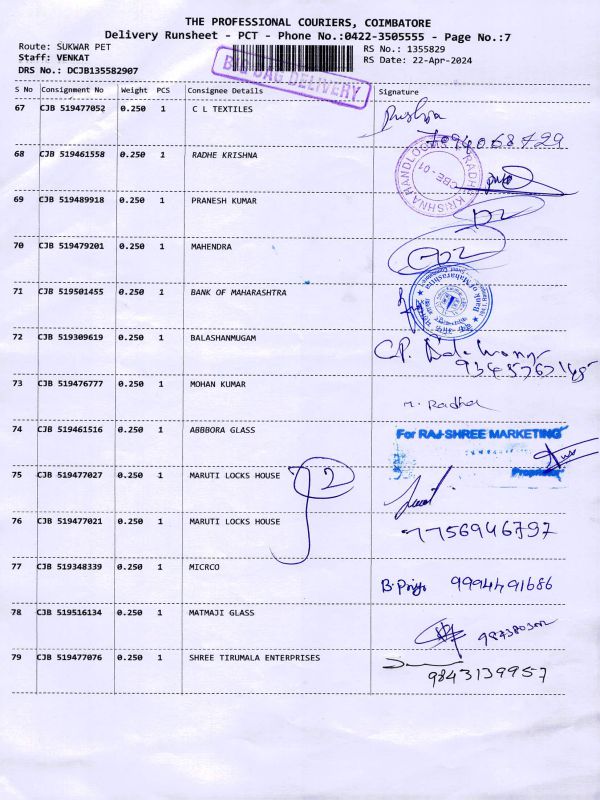 THE PROFESSIONAL COURIERS, COIMBATORE
Delivery Runsheet - PCT - Phone No.:0422-3505555 - Page No.:7
Route: SUKWAR PET
RS No.: 1355829
Staff: VENKAT
BIG BAG DELIVERY
RS Date: 22-Apr-2024
DRS No.: DCJB135582907
S No Consignment No Weight PCS Consignee Details Signature
67 CJB 519477052 0.250 1 C L TEXTILES
7094068729
68 CJB 519461558 0.250 1 RADHE KRISHNA
69 CJB 519489918 0.250 1 PRANESH KUMAR
70 CJB 519479201 0.250 1 MAHENDRA
71 CJB 519501455 0.250 1 BANK OF MAHARASHTRA
Bank of Maharashtra
72 CJB 519309619 0.250 1 BALASHANMUGAM
73 CJB 519476777 0.250 1 MOHAN KUMAR
Radha
74 CJB 519461516 0.250 1 ABBBORA GLASS
For RAJ SHREE MARKETING
Proprietor
75 CJB 519477027 0.250 1 MARUTI LOCKS HOUSE
2
76 CJB 519477021 0.250 1 MARUTI LOCKS HOUSE
7756946797
77 CJB 519348339 0.250 1 MICRCO
B. Priya 9994491686
78 CJB 519516134 0.250 1 MATMAJI GLASS
79 CJB 519477076 0.250 1 SHREE TIRUMALA ENTERPRISES
9843139957